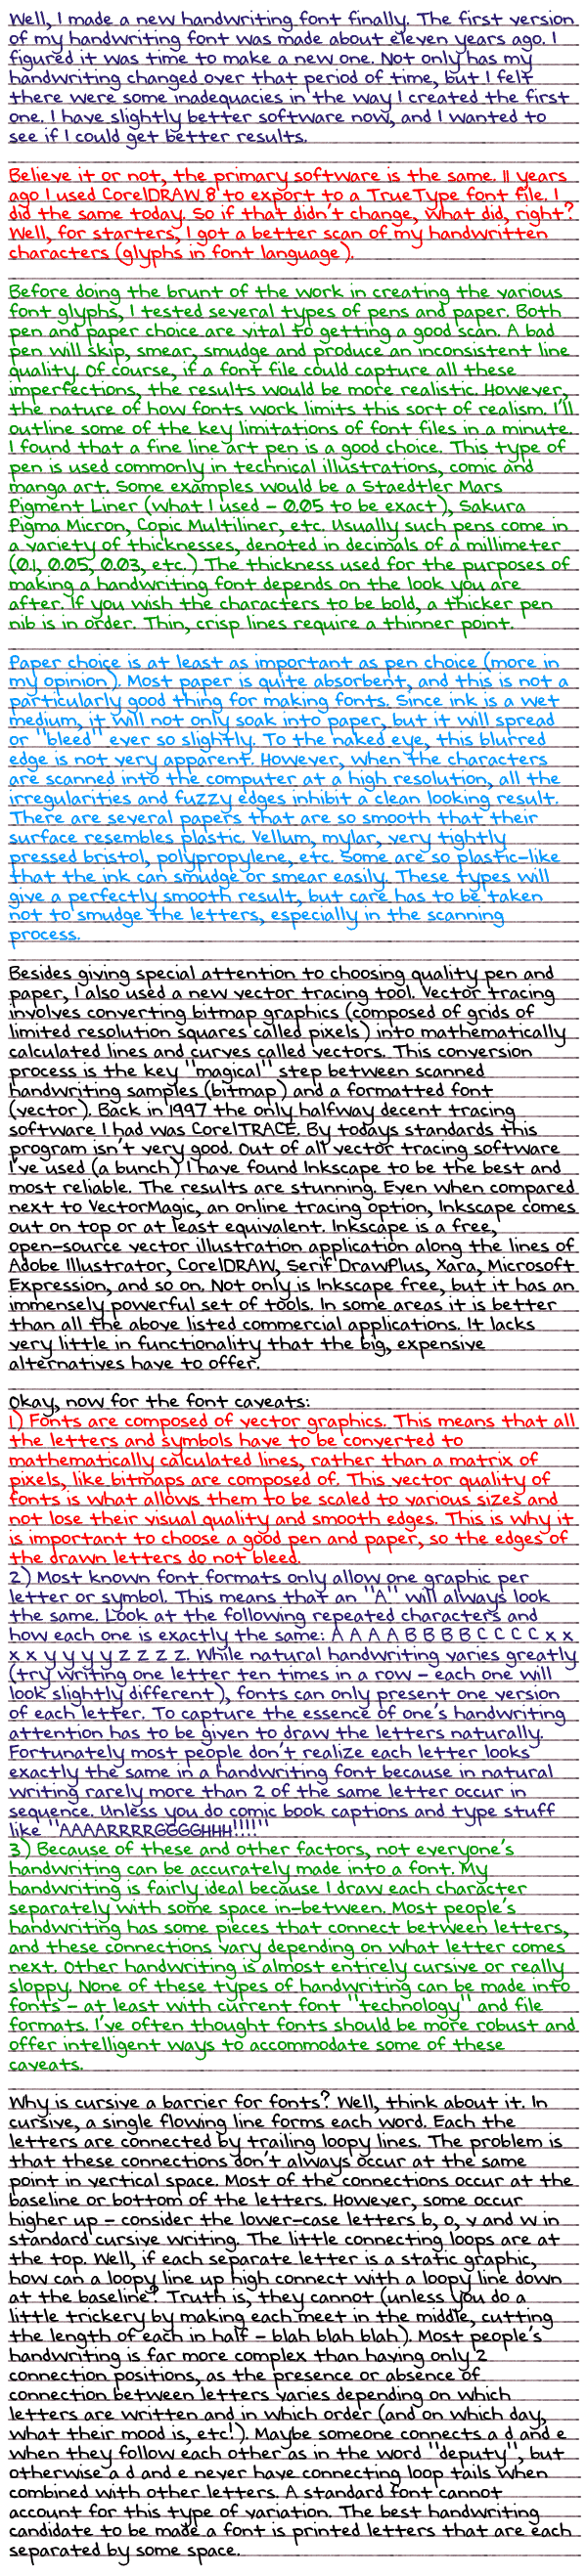 Well, I made a new handwriting font finally. The first version
of my handwriting font was made about eleven years ago. I
figured it was time to make a new one. Not only has my
handwriting changed over that period of time, but I felt
there were some inadequacies in the way I created the first
one. I have slightly better software now, and I wanted to
see if I could get better results.
Believe it or not, the primary software is the same. 11 years
ago I used CorelDRAW 8 to export to a TrueType font file. I
did the same today. So if that didn't change, what did, right?
Well, for starters, I got a better scan of my handwritten
characters (glyphs in font language).
Before doing the brunt of the work in creating the various
font glyphs, I tested several types of pens and paper. Both
pen and paper choice are vital to getting a good scan. A bad
pen will skip, smear, smudge and produce an inconsistent line
quality. Of course, if a font file could capture all these
imperfections, the results would be more realistic. However,
the nature of how fonts work limits this sort of realism. I'll
outline some of the key limitations of font files in a minute.
I found that a fine line art pen is a good choice. This type of
pen is used commonly in technical illustrations, comic and
manga art. Some examples would be a Staedtler Mars
Pigment Liner (what I used - 0.05 to be exact), Sakura
Pigma Micron, Copic Multiliner, etc. Usually such pens come in
a variety of thicknesses, denoted in decimals of a millimeter
(0.1, 0.05, 0.03, etc.) The thickness used for the purposes of
making a handwriting font depends on the look you are
after. If you wish the characters to be bold, a thicker pen
nib is in order. Thin, crisp lines require a thinner point.
Paper choice is at least as important as pen choice (more in
my opinion). Most paper is quite absorbent, and this is not a
particularly good thing for making fonts. Since ink is a wet
medium, it will not only soak into paper, but it will spread
or "bleed" ever so slightly. To the naked eye, this blurred
edge is not very apparent. However, when the characters
are scanned into the computer at a high resolution, all the
irregularities and fuzzy edges inhibit a clean looking result.
There are several papers that are so smooth that their
surface resembles plastic. Vellum, mylar, very tightly
pressed bristol, polypropylene, etc. Some are so plastic-like
that the ink can smudge or smear easily. These types will
give a perfectly smooth result, but care has to be taken
not to smudge the letters, especially in the scanning
process.
Besides giving special attention to choosing quality pen and
paper, I also used a new vector tracing tool. Vector tracing
involves converting bitmap graphics (composed of grids of
limited resolution squares called pixels) into mathematically
calculated lines and curves called vectors. This conversion
process is the key "magical" step between scanned
handwriting samples (bitmap) and a formatted font
(vector). Back in 1997 the only halfway decent tracing
software I had was CorelTRACE. By todays standards this
program isn't very good. Out of all vector tracing software
I've used (a bunch) I have found Inkscape to be the best and
most reliable. The results are stunning. Even when compared
next to VectorMagic, an online tracing option, Inkscape comes
out on top or at least equivalent. Inkscape is a free,
open-source vector illustration application along the lines of
Adobe Illustrator, CorelDRAW, Serif DrawPlus, Xara, Microsoft
Expression, and so on. Not only is Inkscape free, but it has an
immensely powerful set of tools. In some areas it is better
than all the above listed commercial applications. It lacks
very little in functionality that the big, expensive
alternatives have to offer.
Okay, now for the font caveats:
1) Fonts are composed of vector graphics. This means that all
the letters and symbols have to be converted to
mathematically calculated lines, rather than a matrix of
pixels, like bitmaps are composed of. This vector quality of
fonts is what allows them to be scaled to various sizes and
not lose their visual quality and smooth edges. This is why it
is important to choose a good pen and paper, so the edges of
the drawn letters do not bleed.
2) Most known font formats only allow one graphic per
letter or symbol. This means that an "A" will always look
the same. Look at the following repeated characters and
how each one is exactly the same: A A A A B B B B C C C C x x
x x y y y y z z z z. While natural handwriting varies greatly
(try writing one letter ten times in a row - each one will
look slightly different), fonts can only present one version
of each letter. To capture the essence of one's handwriting
attention has to be given to draw the letters naturally.
Fortunately most people don't realize each letter looks
exactly the same in a handwriting font because in natural
writing rarely more than 2 of the same letter occur in
sequence. Unless you do comic book captions and type stuff
like "AAAARRRRGGGGHHH!!!!"
3) Because of these and other factors, not everyone's
handwriting can be accurately made into a font. My
handwriting is fairly ideal because I draw each character
separately with some space in-between. Most people's
handwriting has some pieces that connect between letters,
and these connections vary depending on what letter comes
next. Other handwriting is almost entirely cursive or really
sloppy. None of these types of handwriting can be made into
fonts - at least with current font "technology" and file
formats. I've often thought fonts should be more robust and
offer intelligent ways to accommodate some of these
caveats.
Why is cursive a barrier for fonts? Well, think about it. In
cursive, a single flowing line forms each word. Each the
letters are connected by trailing loopy lines. The problem is
that these connections don't always occur at the same
point in vertical space. Most of the connections occur at the
baseline or bottom of the letters. However, some occur
higher up - consider the lower-case letters b, o, v and w in
standard cursive writing. The little connecting loops are at
the top. Well, if each separate letter is a static graphic,
how can a loopy line up high connect with a loopy line down
at the baseline? Truth is, they cannot (unless you do a
little trickery by making each meet in the middle, cutting
the length of each in half - blah blah blah). Most people's
handwriting is far more complex than having only 2
connection positions, as the presence or absence of
connection between letters varies depending on which
letters are written and in which order (and on which day,
what their mood is, etc!). Maybe someone connects a d and e
when they follow each other as in the word "deputy", but
otherwise a d and e never have connecting loop tails when
combined with other letters. A standard font cannot
account for this type of variation. The best handwriting
candidate to be made a font is printed letters that are each
separated by some space.